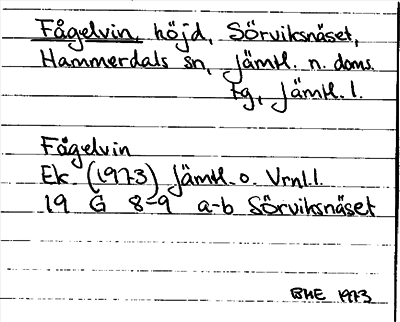 Fågelvin, höjd, Sörviksnäset,
Hammerdals sn, Jämtl. n. doms.
tg, Jämtl. l.
Fågelvin
Ek. (1973) Jämtl. o. Vrnl. l.
19 G 8-9 a-b Sörviksnäset
BHE 1973